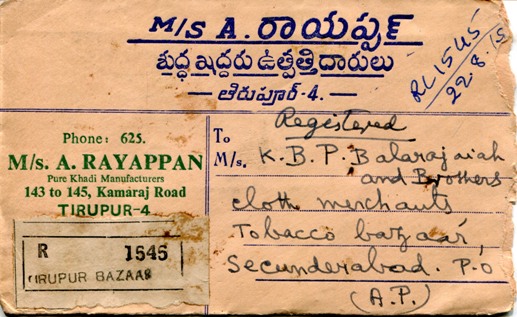 M/S A. రాయప్పన్
శుద్ధ ఖద్దరు ఉత్పత్తిదారులు
— తిరుపూర్-4. —
RL1545
22.8.15
Phone: 625.
M/s. A. RAYAPPAN
Pure Khadi Manufacturers
143 to 145, Kamaraj Road
TIRUPUR-4
R 1545
TIRUPUR BAZAAR
Registered
To
M/s. K.B.P. Balarajaiah
and Brothers
cloth merchants
Tobacco bazaar,
Secunderabad. P.O
(A.P.)